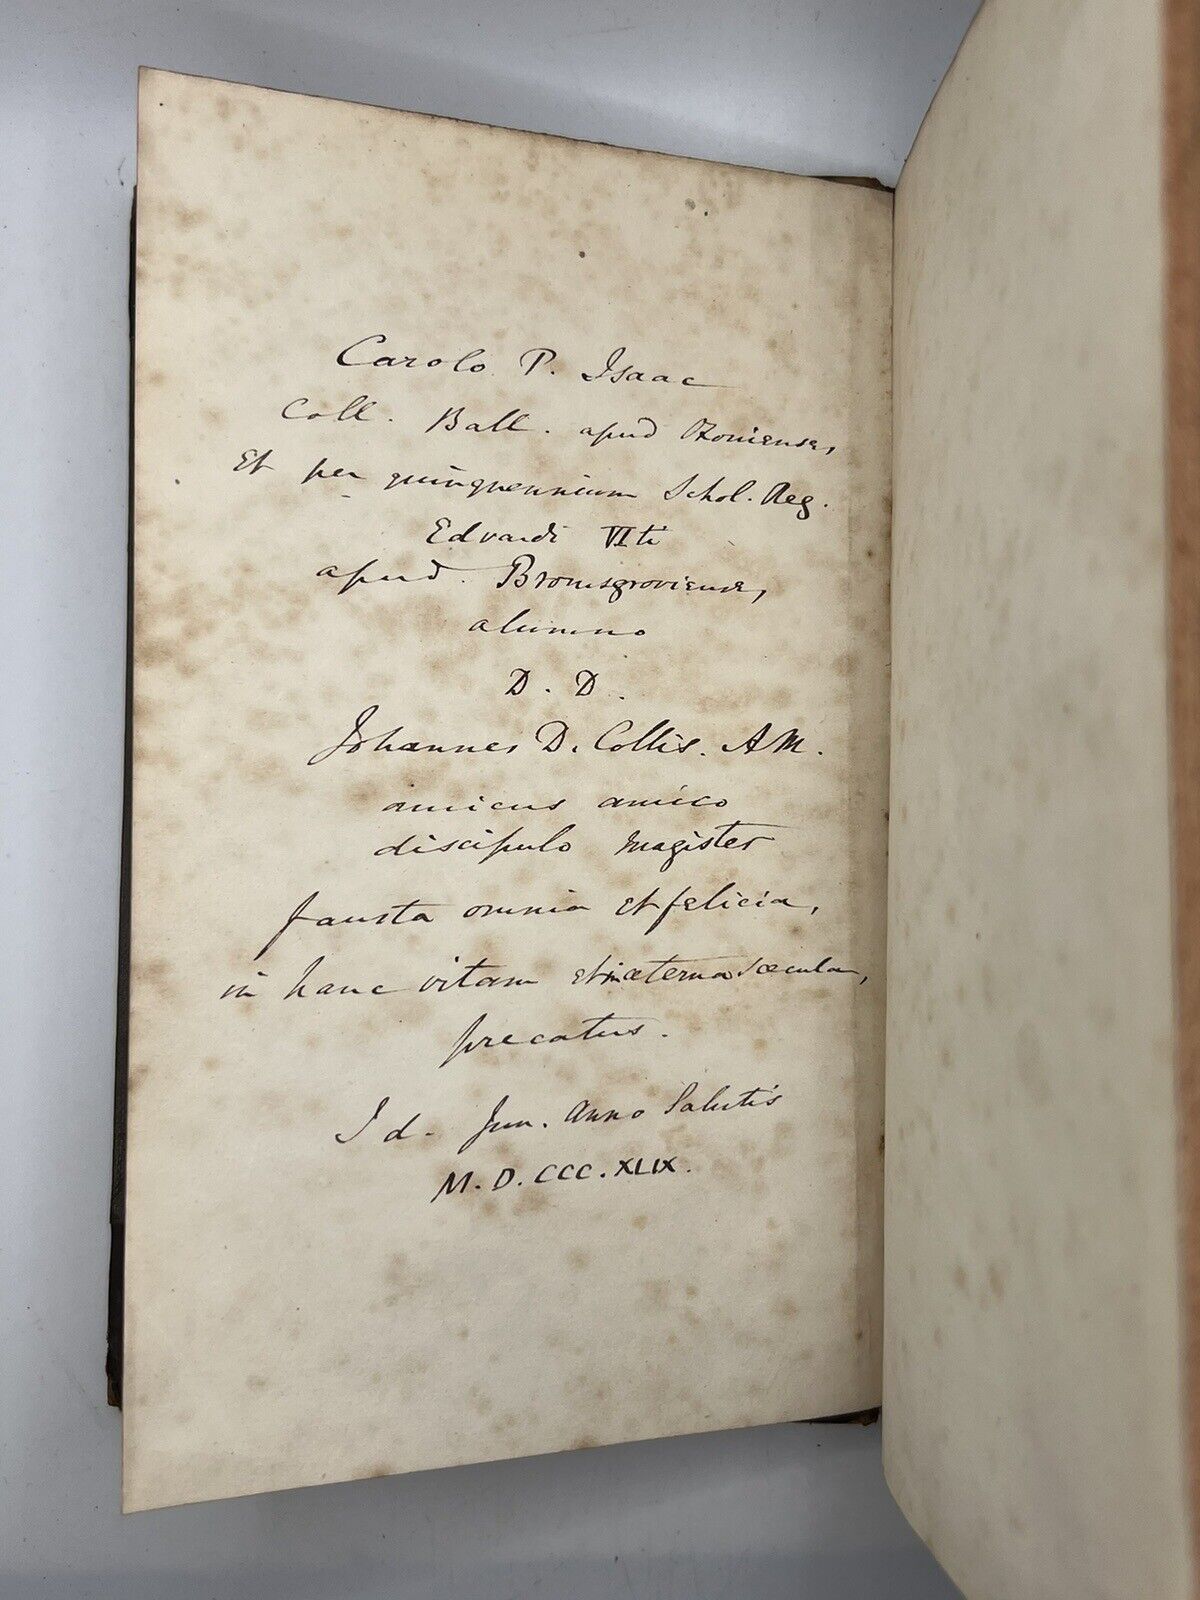 Carolo P. Isaac
Coll. Ball. apud Oxonienses,
Et per quinquennium Schol. Reg.
Edvardi VIti
apud Bromsgrovienses,
alumno
D. D.
Johannes D. Collis. AM.
amicus amico
discipulo magister
fausta omnia et felicia,
in hanc vitam et in æterna sæcula,
precatus.
Id. Jun. Anno Salutis
M.D.CCC.XLIX.